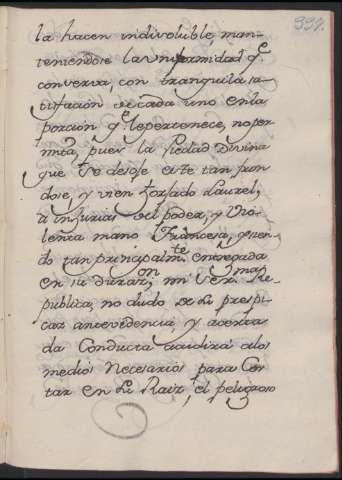 339.
la hacen indivoluble, man-
teniendose la Uniformidad q.e
conversa, con tranquila sa-
tisfacion de cada uno en la
porcion q.e le pertenece, no per-
mita, pues la Piedad Divina
que se desoje este tan fron
doso, y vien Laurel,
à injurias del poder, y Vio-
lenta mano Francesa, q
do tan principalm.te entregada
en su duracion mi Ven. Re-
publica, no dudo de la prespi-
caz antevidencia, y acerta-
da Conducta acudirà alos
medios Necesarios para Cor-
tar en la Raiz, el peligroso